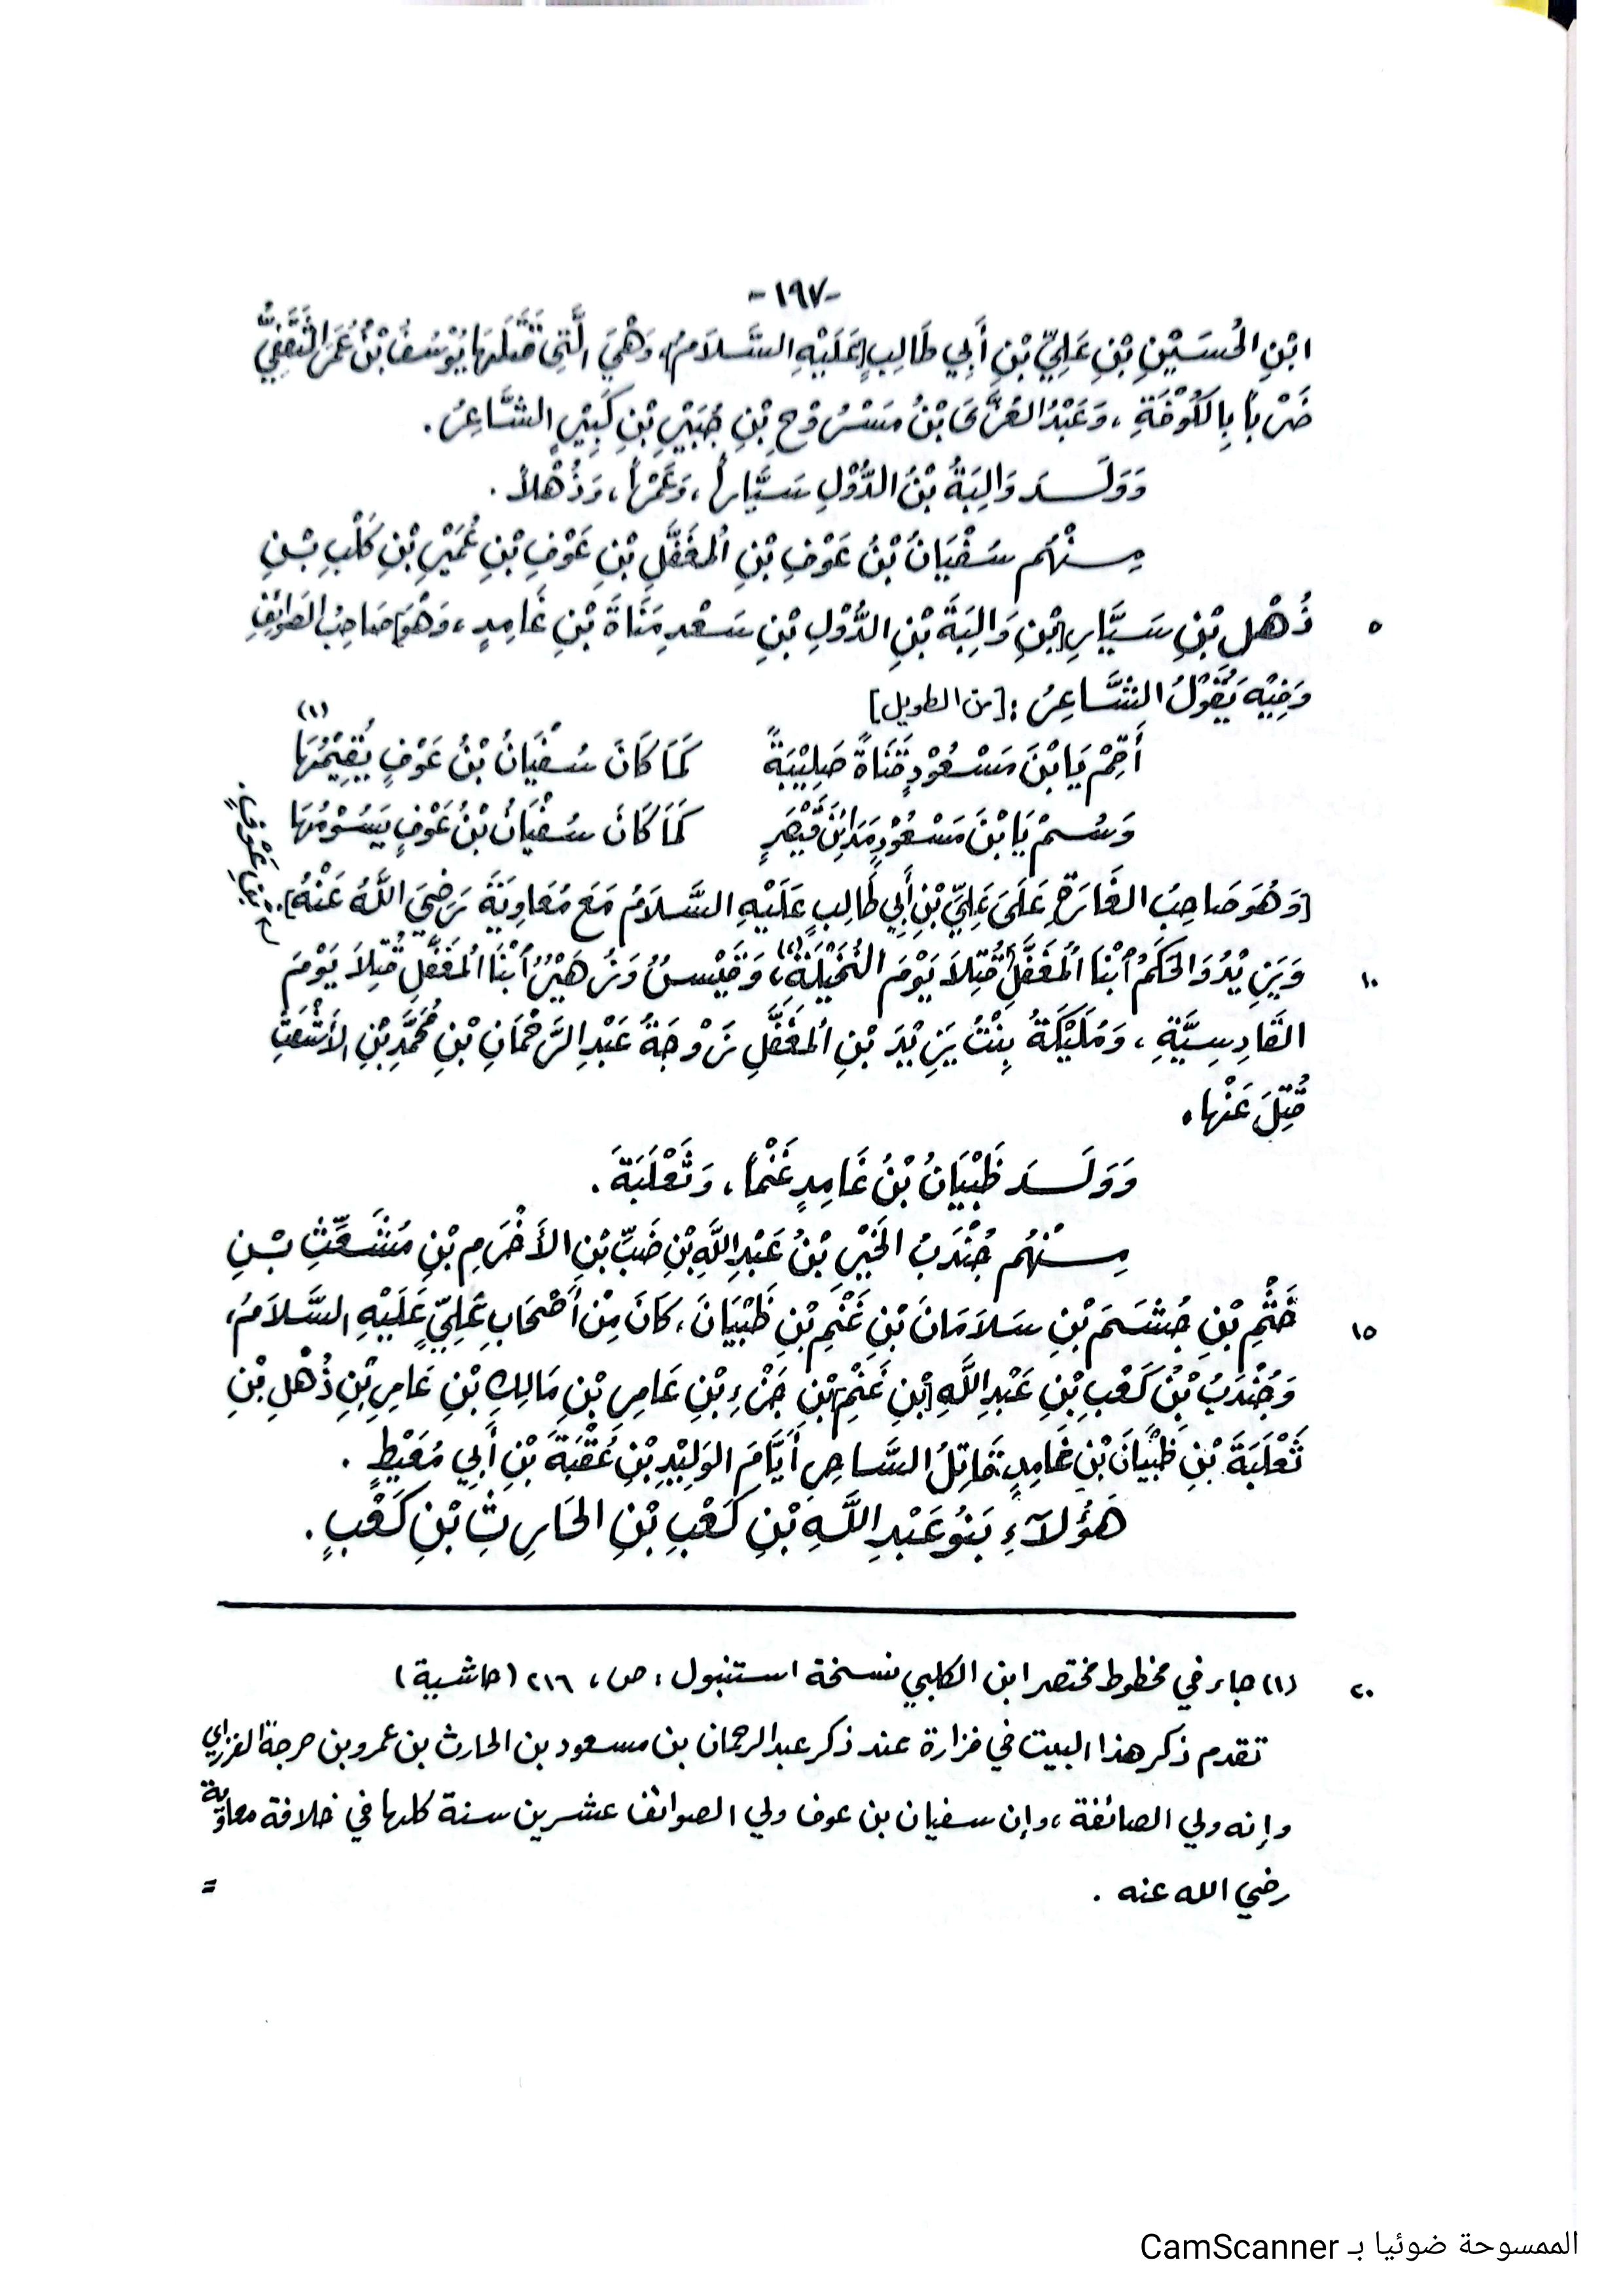 -١٩٧-
ابْنِ الحُسَيْنِ بْنِ عَلِيِّ بْنِ أَبِي طَالِبٍ [عَلَيْهِ السَّلاَمُ]، وَهْيَ الَّتِي قَتَلَهَا يُوْسُفُ بْنُ عُمَرَ الثَّقَفِيُّ
ضَرْبَاً بِالكُوْفَةِ، وَعَبْدُ العُزَّى بْنُ مَسْرُوْحِ بْنِ جُبَيْرِ بْنِ كَبِيْرٍ الشَّاعِرُ.
وَوَلَـــدَ وَالِبَةُ بْنُ الدُّوْلِ سَيَّاراً، وَعَمْراً، وَذُهْلاً.
مِـــنْهُم سُفْيَانُ بْنُ عَوْفِ بْنِ المُغَفَّلِ بْنِ عَوْفِ بْنِ عُمَيْرِ بْنِ كَلْبِ بْـنِ
٥ ذُهْلِ بْنِ سَيَّارِ [بْنِ وَالِبَةَ بْنِ الدُّوْلِ بْنِ سَعْدِ مَنَاةَ بْنِ غَامِدٍ، وَهْوَ] صَاحِبُ الصَّوَائِفِ
وَفِيْهِ يَقُوْلُ الشَّاعِرُ: [من الطويل]
أَقِمْ يَا بْنَ مَسْعُوْدٍ قَنَاةً صَلِيْبَةً كَمَا كَانَ سُفْيَانُ بْنُ عَوْفٍ يُقِيْمُهَا (١)
وَسُمْ يَا بْنَ مَسْعُوْدٍ مَدَائِنَ قَيْصَرٍ كَمَا كَانَ سُفْيَانُ بْنُ عَوْفٍ يَسُوْمُهَا
[وَهُوَ صَاحِبُ الغَارَةِ عَلَى عَلِيِّ بْنِ أَبِي طَالِبٍ عَلَيْهِ السَّلاَمُ مَعَ مُعَاوِيَةَ رَضِيَ اللَّهُ عَنْهُ].
بْنِ عَوْفٍ.
١٠ وَيَزِيْدُ وَالحَكَمُ ٱبْنَا المُغَفَّلِ قُتِلاَ يَوْمَ النُّخَيْلَةِ (٢)، وَقَيْسُ وَزُهَيْرُ ٱبْنَا المُغَفَّلِ قُتِلاَ يَوْمَ
القَادِسِيَّةِ، وَمُلَيْكَةُ بِنْتُ يَزِيْدَ بْنِ المُغَفَّلِ زَوْجَةُ عَبْدِ الرَّحْمَانِ بْنِ مُحَمَّدِ بْنِ الأَشْعَثِ
قُتِلَ عَنْهَا.
وَوَلَـــدَ ظَبْيَانُ بْنُ غَامِدٍ غَنْمَاً، وَثَعْلَبَةَ.
مِـــنْهُم جُنْدَبُ الخَيْرِ بْنُ عَبْدِ اللَّهِ بْنِ ضَبِّ بْنِ الأَخْرَمِ بْنِ مُشَعِّثِ بْـنِ
١٥ خَثْمِ بْنِ جُشَمَ بْنِ سَلاَمَانَ بْنِ غَنْمِ بْنِ ظَبْيَانَ، كَانَ مِنْ أَصْحَابِ عَلِيٍّ عَلَيْهِ السَّلاَمُ،
وَجُنْدَبُ بْنُ كَعْبِ بْنِ عَبْدِ اللَّهِ [بْنِ غَنْمِ] بْنِ جَزْءِ بْنِ عَامِرِ بْنِ مَالِكِ بْنِ عَامِرِ بْنِ ذُهْلِ بْنِ
ثَعْلَبَةَ بْنِ ظَبْيَانَ بْنِ غَامِدٍ، قَاتِلُ السَّاحِرِ أَيَّامَ الوَلِيْدِ بْنِ عُقْبَةَ بْنِ أَبِي مُعَيْطٍ.
هَؤُلآَءِ بَنُو عَبْدِ اللَّهِ بْنِ كَعْبِ بْنِ الحَارِثِ بْنِ كَعْبٍ.
٢٠ (١) جاء في مخطوط مختصر ابن الكلبي نسخة استنبول، ص، ٢١٦ (حاشية)
تقدم ذكر هذا البيت في فزارة عند ذكر عبد الرحمان بن مسعود بن الحارث بن عمرو بن حرجة الفزاري
وإنه ولي الصائفة، وإن سفيان بن عوف ولي الصوائف عشرين سنة كلها في خلافة معاوية
رضي الله عنه.
=
الممسوحة ضوئيا بـ CamScanner